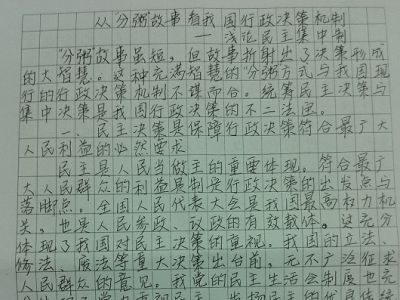 从“分粥”故事看我国行政决策机制
——浅论民主集中制
“分粥”故事虽短，但故事折射出了决策形成
的大智慧。这种充满智慧的“分粥”方式与我国现
行的行政决策机制不谋而合。统筹民主决策与
集中决策是我国行政决策的不二法宝。
一、民主决策是保障行政决策符合最广大
人民利益的必然要求
民主是人民当做主的重要体现。符合最广
大人民群众的利益是制定行政决策的出发点与
落脚点。全国人民代表大会是我国最高权力机
关，也是人民参政、议政的有效载体。这充分
体现了我国对民主决策的重视。我国的立法、
修法、废法等重大决策出台前，无不广泛征求
人民群众的意见。我党的民主生活会制度也充